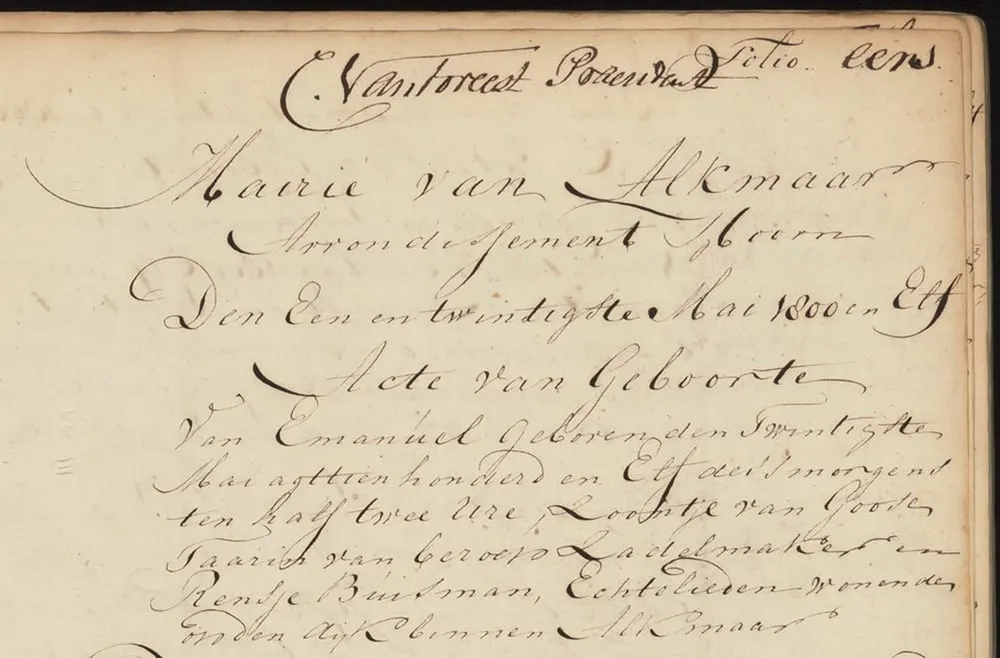 C. Vanforeest Praesident Folio eers
Mairie van Alkmaar
Arrondissement Hoorn
Den Een en twintigste Mai 1800 en Elf
Acte van Geboorte
Van Emanuel Geboren den Twintigste
Mai agttien honderd en Elf des smorgens
ten half twee Ure, Zoontje van Goose
Taarin van beroep Zadelmaker en
Rensje Buisman, Echtelieden wonende
op den dijk binnen Alkmaar